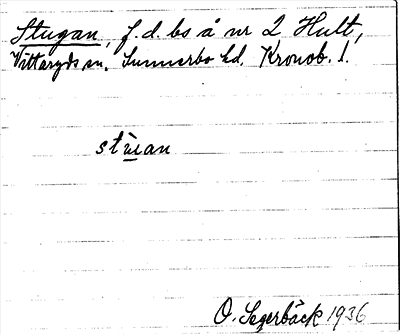 Stugan, f.d. bs å nr 2 Hult,
Vittaryds sn. Sunnerbo hd. Kronob. l.
stu̇an
O. Segerbäck 1936